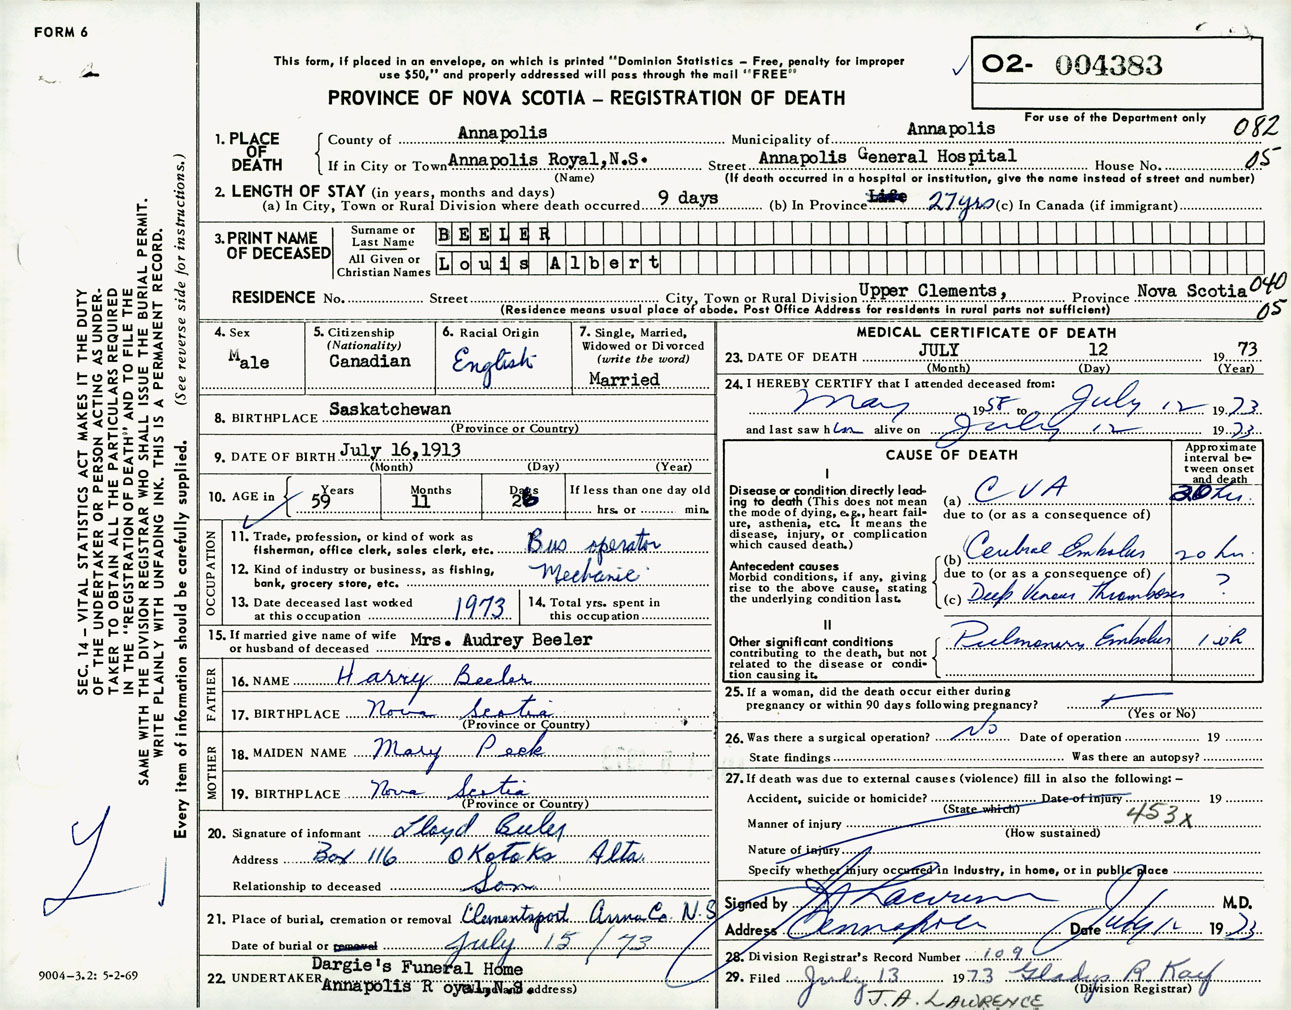 FORM 6
This form, if placed in an envelope, on which is printed "Dominion Statistics – Free, penalty for improper
use $50," and properly addressed will pass through the mail "FREE"
PROVINCE OF NOVA SCOTIA – REGISTRATION OF DEATH
02- 004383
For use of the Department only
082
05
1. PLACE OF DEATH
County of Annapolis Municipality of Annapolis
If in City or Town Annapolis Royal, N.S. Street Annapolis General Hospital House No.
(Name) (If death occurred in a hospital or institution, give the name instead of street and number)
2. LENGTH OF STAY (in years, months and days)
(a) In City, Town or Rural Division where death occurred 9 days (b) In Province Life 27 yrs (c) In Canada (if immigrant)
3. PRINT NAME OF DECEASED
Surname or Last Name BEELER
All Given or Christian Names Louis Albert
RESIDENCE No. Street City, Town or Rural Division Upper Clements, Province Nova Scotia 040
(Residence means usual place of abode. Post Office Address for residents in rural parts not sufficient) 05
4. Sex Male
5. Citizenship (Nationality) Canadian
6. Racial Origin English
7. Single, Married, Widowed or Divorced (write the word) Married
8. BIRTHPLACE Saskatchewan
(Province or Country)
9. DATE OF BIRTH July 16, 1913
(Month) (Day) (Year)
10. AGE in Years 59 Months 11 Days 26 If less than one day old
hrs. or min.
OCCUPATION
11. Trade, profession, or kind of work as
fisherman, office clerk, sales clerk, etc. Bus operator
12. Kind of industry or business, as fishing,
bank, grocery store, etc. Mechanic
13. Date deceased last worked
at this occupation 1973
14. Total yrs. spent in
this occupation
15. If married give name of wife
or husband of deceased Mrs. Audrey Beeler
FATHER
16. NAME Harry Beeler
17. BIRTHPLACE Nova Scotia
(Province or Country)
MOTHER
18. MAIDEN NAME Mary Peck
19. BIRTHPLACE Nova Scotia
(Province or Country)
20. Signature of informant Lloyd Beeler
Address Box 116 Okotoks Alta.
Relationship to deceased Son
21. Place of burial, cremation or removal Clementsport Anna Co. N.S
Date of burial or removal July 15 / 73
22. UNDERTAKER Dargie's Funeral Home
Annapolis Royal, N.S.
(Name and address)
MEDICAL CERTIFICATE OF DEATH
23. DATE OF DEATH JULY 12 1973
(Month) (Day) (Year)
24. I HEREBY CERTIFY that I attended deceased from:
May 1958 to July 12 1973
and last saw him alive on July 12 1973
CAUSE OF DEATH
Approximate interval between onset and death
I
Disease or condition directly leading
to death (This does not mean
the mode of dying, e.g., heart failure,
asthenia, etc. It means the
disease, injury, or complication
which caused death.)
(a) CVA 20 hr.
due to (or as a consequence of)
(b) Cerebral Embolus 20 hr.
due to (or as a consequence of)
Antecedent causes
Morbid conditions, if any, giving
rise to the above cause, stating
the underlying condition last.
(c) Deep Venous Thromboses ?
II
Other significant conditions
contributing to the death, but not
related to the disease or condition
causing it.
Pulmonary Embolus
25. If a woman, did the death occur either during
pregnancy or within 90 days following pregnancy?
(Yes or No)
26. Was there a surgical operation? No Date of operation 19
State findings Was there an autopsy?
27. If death was due to external causes (violence) fill in also the following: –
Accident, suicide or homicide? Date of injury 19
(State which)
453x
Manner of injury
(How sustained)
Nature of injury
Specify whether injury occurred in industry, in home, or in public place
Signed by Lawrence M.D.
Address Annapolis Date July 12 1973
28. Division Registrar's Record Number 109
29. Filed July 13 1973 Gladys R Kaif
(Division Registrar)
J. A. LAWRENCE
SEC. 14 – VITAL STATISTICS ACT MAKES IT THE DUTY
OF THE UNDERTAKER OR PERSON ACTING AS UNDERTAKER
TO OBTAIN ALL THE PARTICULARS REQUIRED
IN THE "REGISTRATION OF DEATH" AND TO FILE THE
SAME WITH THE DIVISION REGISTRAR WHO SHALL ISSUE THE BURIAL PERMIT.
WRITE PLAINLY WITH UNFADING INK. THIS IS A PERMANENT RECORD.
Every item of information should be carefully supplied. (See reverse side for instructions.)
9004–3.2: 5-2-69